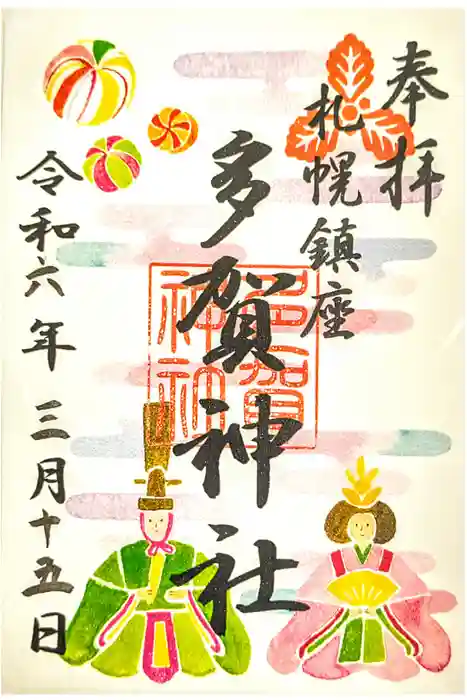 奉拝
札幌鎮座
多賀神社
多賀神社
令和六年 三月十五日